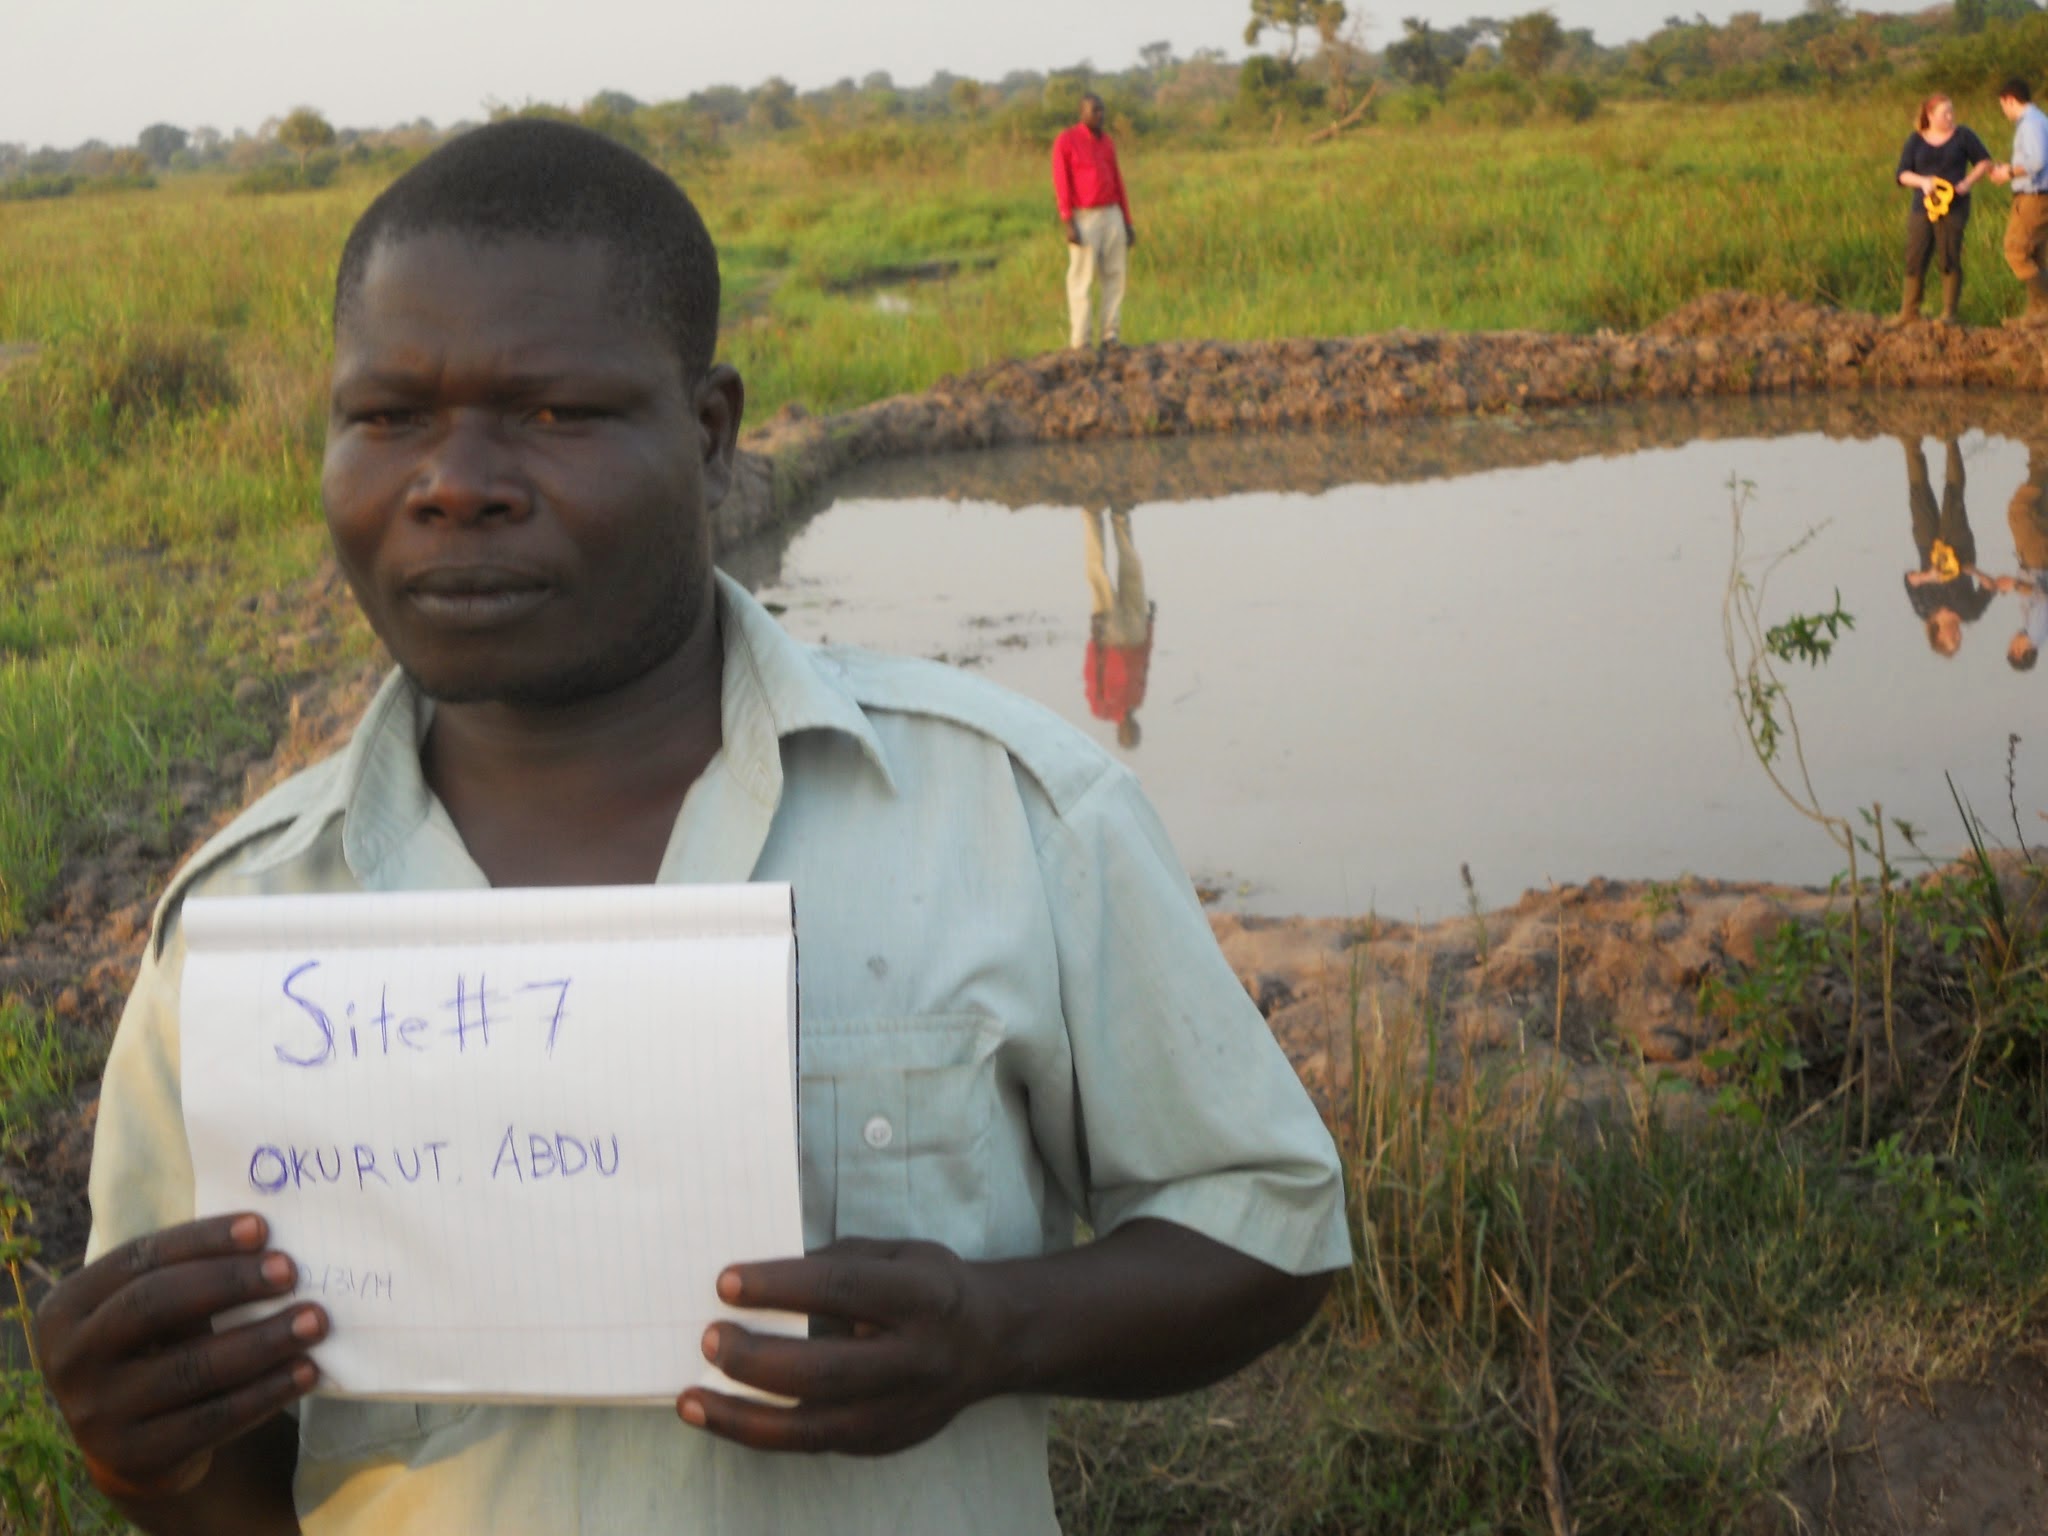 Site #7
OKURUT. ABDU
/31/14